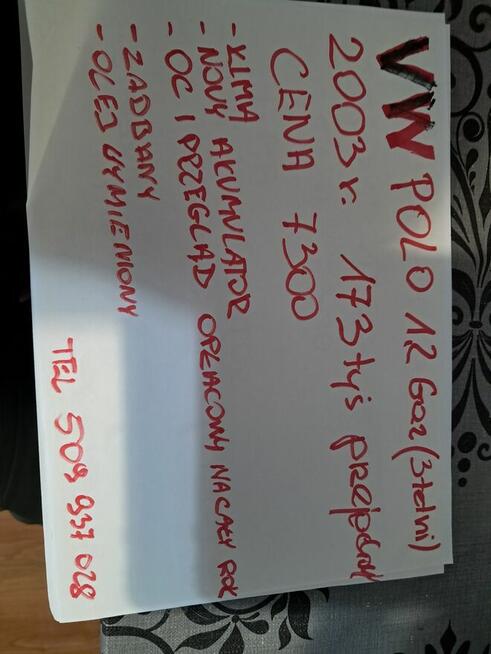 VW POLO 12 Gaz (3 letni)
2003 r. 173 tyś
CENA 7300
- KLIMA
- NOWY AKUMULATOR
- OC I PRZEGLAD OPŁACONY NA CAŁY ROK
- ZADBANY
- OLEJ WYMIENIONY
TEL 509 937 028